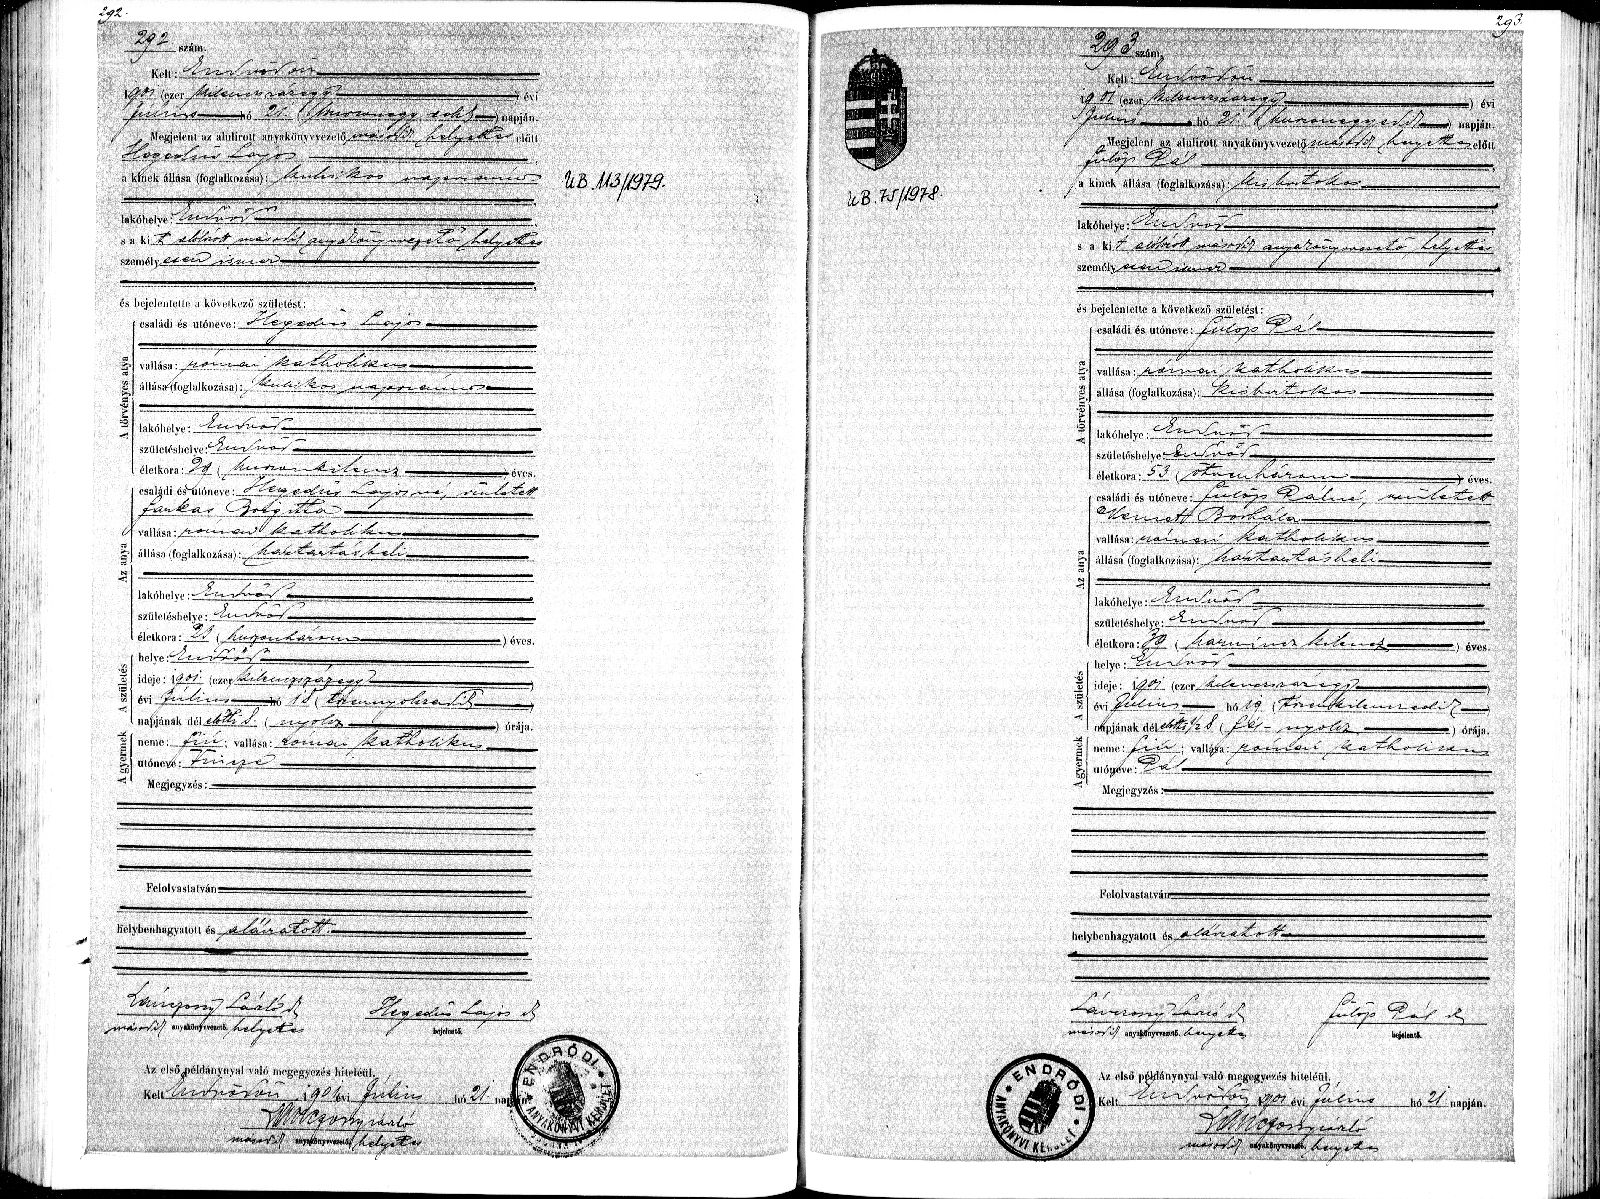 292.
292 szám.
Kelt: Endrődön
1901 (ezer kilenczszázegy) évi
Július hó 21. (huszonegyedik) napján.
Megjelent az alulirott anyakönyvvezető, második helyettes előtt
Hegedűs Lajos
a kinek állása (foglalkozása): kubikos napszámos
lakóhelye: Endrőd
s a kit alólirott második anyakönyvvezető helyettes
személyesen ismer
és bejelentette a következő születést:
A törvényes atya
családi és utóneve: Hegedűs Lajos
vallása: római katholikus
állása (foglalkozása): kubikos napszámos
lakóhelye: Endrőd
születéshelye: Endrőd
életkora: 29 (huszonkilencz) éves.
Az anya
családi és utóneve: Hegedűs Lajosné, született
Farkas Brigitta
vallása: római katholikus
állása (foglalkozása): háztartásbeli
lakóhelye: Endrőd
születéshelye: Endrőd
életkora: 23 (huszonhárom) éves.
A születés
helye: Endrőd
ideje: 1901 (ezer kilenczszázegy)
évi Július hó 18 (tizennyolczadik)
napjának dél előtti 8. (nyolcz) órája.
A gyermek
neme: fiú; vallása: római katholikus
utóneve:
Megjegyzés:
Felolvastatván
helybenhagyatott és aláiratott.
László
második anyakönyvvezető helyettes
Hegedűs Lajos
bejelentő.
Az első példánynyal való megegyezés hiteléül.
Kelt Endrődön 1901 évi Július hó 21 napján.
második anyakönyvvezető helyettes
ENDRŐDI
ANYAKÖNYVI KERÜLET
UB. 113/1979.
293
293 szám.
UB. 75/1978.
Kelt: Endrődön
1901 (ezer kilenczszázegy) évi
Július hó 21. (huszonegyedik) napján.
Megjelent az alulirott anyakönyvvezető második helyettes előtt
Fülöp Pál
a kinek állása (foglalkozása): kisbirtokos
lakóhelye: Endrőd
s a kit alólirott második anyakönyvvezető helyettes
személyesen ismer
és bejelentette a következő születést:
A törvényes atya
családi és utóneve: Fülöp Pál
vallása: római katholikus
állása (foglalkozása): kisbirtokos
lakóhelye: Endrőd
születéshelye: Endrőd
életkora: 53 (ötvenhárom) éves.
Az anya
családi és utóneve: Fülöp Pálné, született
Borbála
vallása: római katholikus
állása (foglalkozása): háztartásbeli
lakóhelye: Endrőd
születéshelye: Endrőd
életkora: 39 (harminczkilencz) éves.
A születés
helye: Endrőd
ideje: 1901 (ezer kilenczszázegy)
évi Július hó 19 (tizenkilenczedik)
napjának dél előtti 1/2 8 (fél nyolcz) órája.
A gyermek
neme: fiú; vallása: római katholikus
utóneve: Pál
Megjegyzés:
Felolvastatván
helybenhagyatott és aláiratott
László
második anyakönyvvezető helyettes
Fülöp Pál
bejelentő.
Az első példánynyal való megegyezés hiteléül.
Kelt Endrődön 1901 évi Július hó 21 napján.
második anyakönyvvezető helyettes
ENDRŐDI
ANYAKÖNYVI KERÜLET